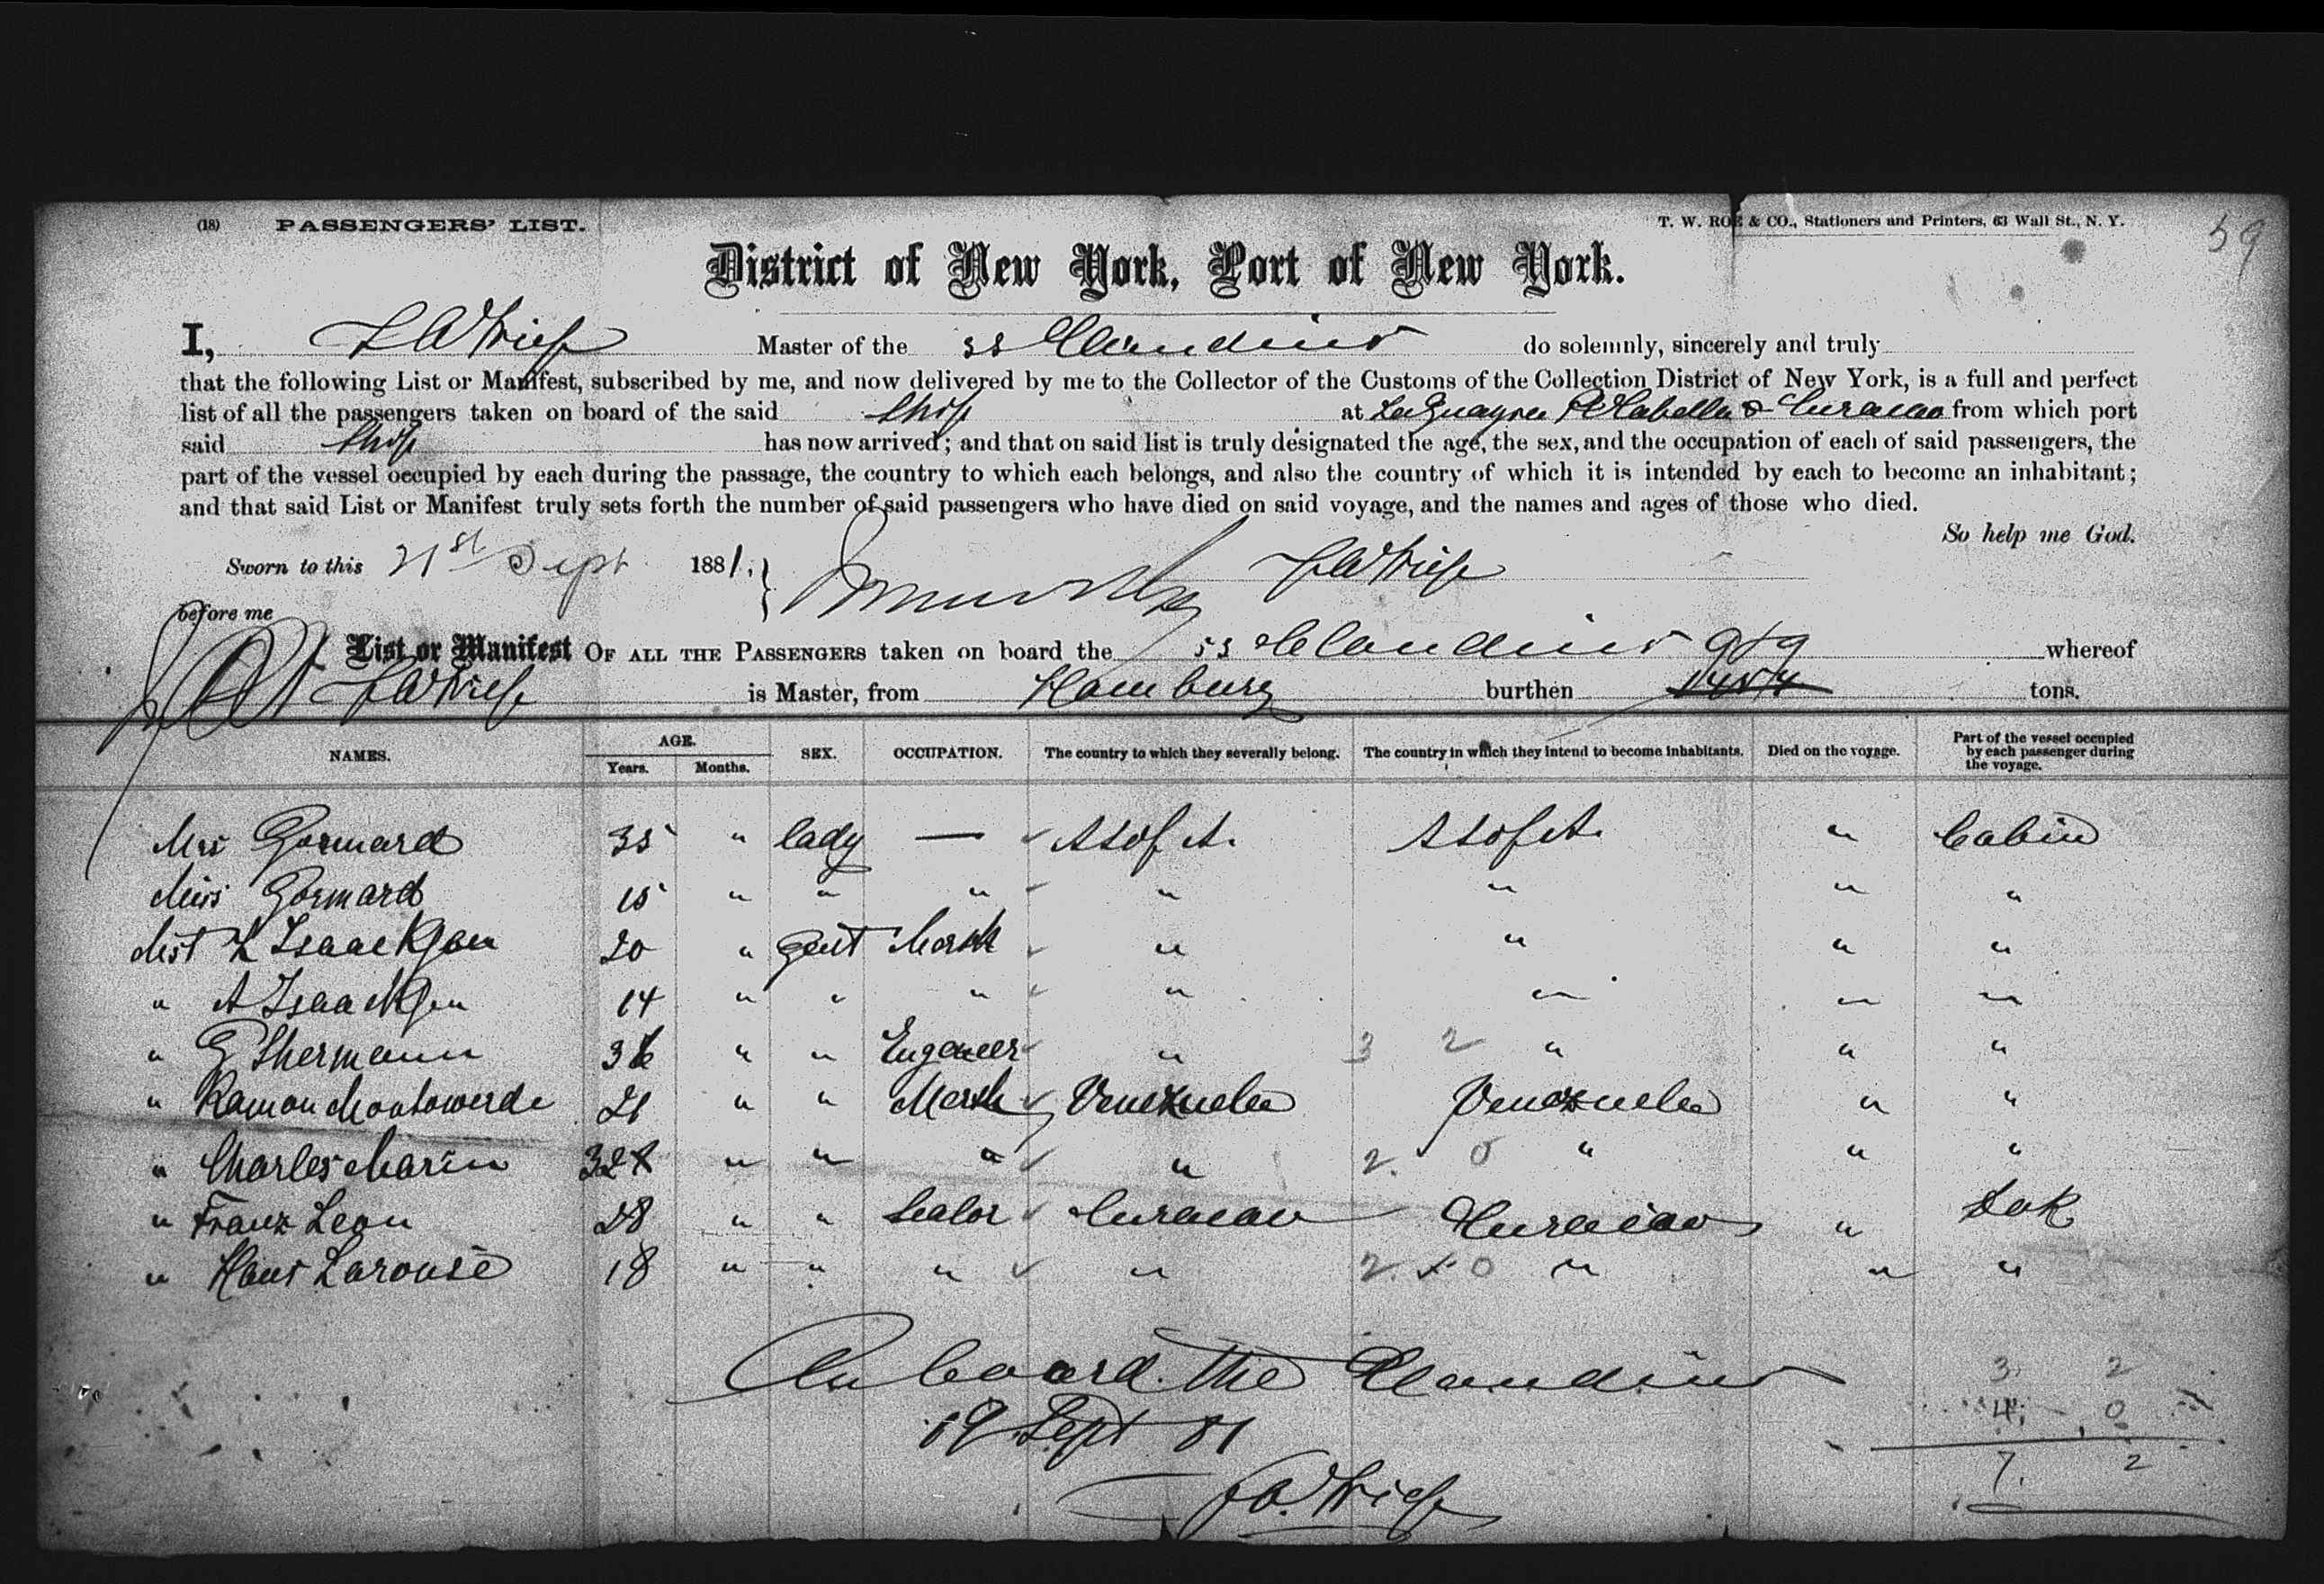 (18) PASSENGERS' LIST.
T. W. ROE & CO., Stationers and Printers, 63 Wall St., N. Y.
59
District of New York, Port of New York.
I, Master of the ss Claudius do solemnly, sincerely and truly
that the following List or Manifest, subscribed by me, and now delivered by me to the Collector of the Customs of the Collection District of New York, is a full and perfect
list of all the passengers taken on board of the said Ship at LaGuayra P Cabello & Curacao from which port
said Ship has now arrived; and that on said list is truly designated the age, the sex, and the occupation of each of said passengers, the
part of the vessel occupied by each during the passage, the country to which each belongs, and also the country of which it is intended by each to become an inhabitant;
and that said List or Manifest truly sets forth the number of said passengers who have died on said voyage, and the names and ages of those who died.
So help me God.
Sworn to this 21st Sept 1881.
before me
List or Manifest OF ALL THE PASSENGERS taken on board the ss Claudius 959 whereof
is Master, from Hamburg burthen tons.
NAMES. AGE. Years. Months. SEX. OCCUPATION. The country to which they severally belong. The country in which they intend to become inhabitants. Died on the voyage. Part of the vessel occupied by each passenger during the voyage.
Mrs Gormard 35 " lady — U S of A. U S of A. " Cabin
Miss Gormard 15 " " " " " " "
Mst L Isaackson 20 " Gent Merch " " " "
" A Isaackson 14 " " " " " " "
" G Shermann 36 " " Engeneer " 3 2 " " "
" Ramon Montowerde 21 " " Merch Venezuela Venezuela " "
" Charles Marin 32 " " " " 2. 0 " " "
" Franz Leon 28 " " Sealor Curacao Curacao " Dek
" Hans Larouse 18 " " " " 2. 0 " " "
On board the Claudius
19 Sept 81
3 2
4 0
7. 2